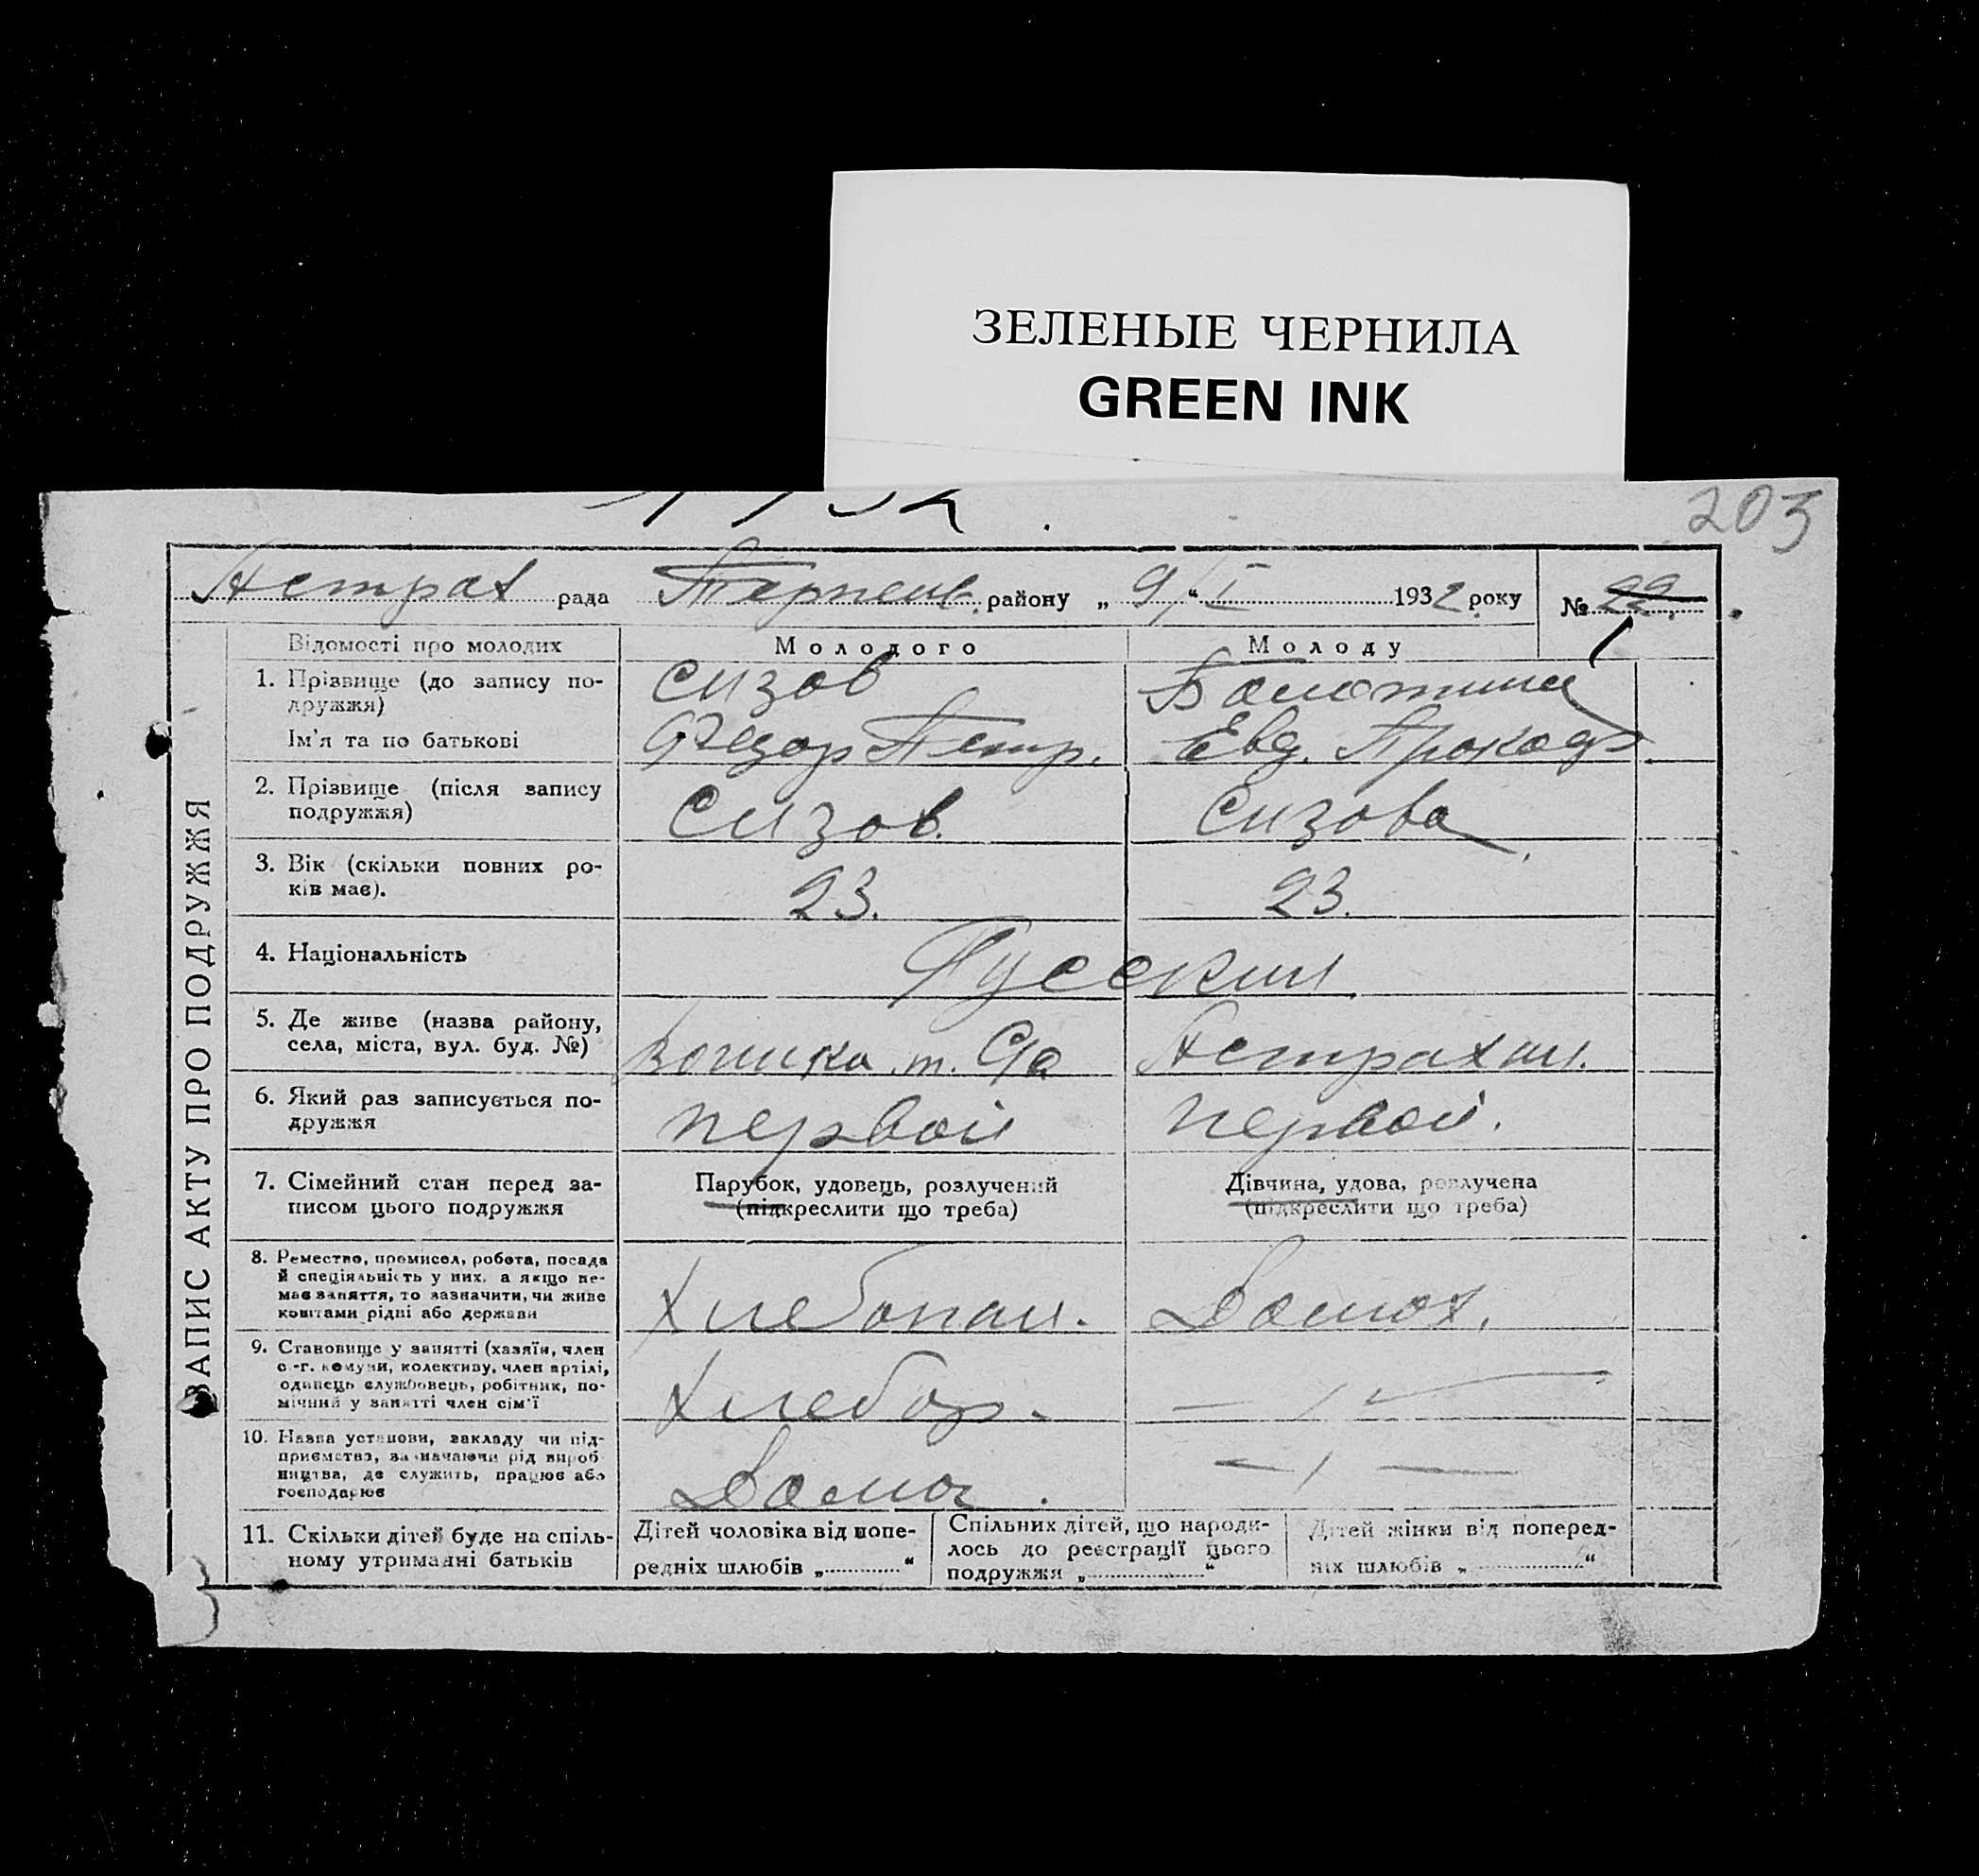 ЗЕЛЕНЫЕ ЧЕРНИЛА
GREEN INK
1932.
203
Астрах рада Терпен. району „9/“ I 1932 року № 22.
1
ЗАПИС АКТУ ПРО ПОДРУЖЖЯ
Відомості про молодих
Молодого
Молоду
1. Прізвище (до запису по-
дружжя)
Ім'я та по батькові
Сизов
Федор Петр.
Болотина
Евд. Прокоф
2. Прізвище (після запису
подружжя)
Сизов.
Сизова
3. Вік (скільки повних ро-
ків має).
23.
23.
4. Національність
Русский
5. Де живе (назва району,
села, міста, вул. буд. №)
Астрахан.
6. Який раз записується по-
дружжя
первой
первой.
7. Сімейний стан перед за-
писом цього подружжя
Парубок, удовець, розлучений
(підкреслити що треба)
Дівчина, удова, розлучена
(підкреслити що треба)
8. Ремество, промисел, робота, посада
й спеціяльність у них, а якщо не-
має заняття, то зазначити, чи живе
коштами рідні або держави
Хлебопаш.
Домох.
9. Становище у занятті (хазяїн, член
с.-г. комуни, колективу, член артілі,
одинець службовець, робітник, по-
мічний у занятті член сім'ї
Хлебор.
— / —
10. Назва установи, закладу чи під-
приємства, зазначаючи рід вироб-
ництва, де служить, працює або
господарює
Дома.
— / —
11. Скільки дітей буде на спіль-
ному утриманні батьків
Дітей чоловіка від попе-
редніх шлюбів „ “
Спільних дітей, що народи-
лось до реєстрації цього
подружжя „ “
Дітей жінки від поперед-
ніх шлюбів „ “